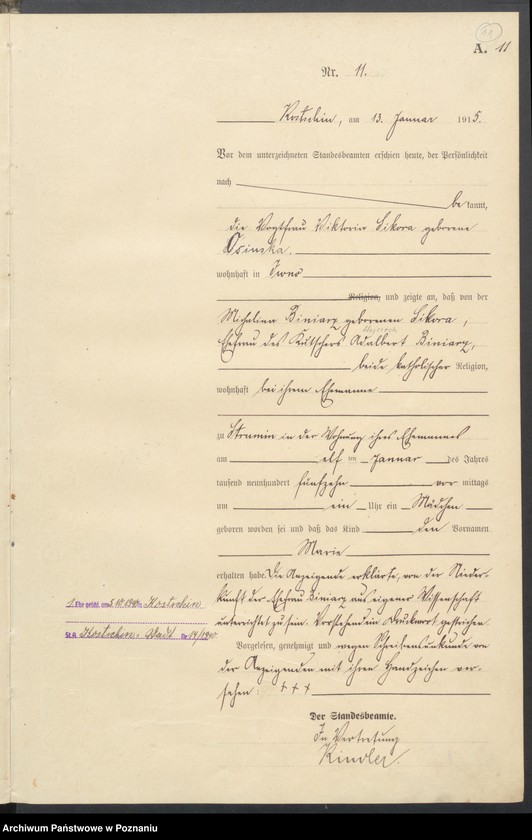 11
A. 11
Nr. 11.
Kostschin, am 13. Januar 1915.
Vor dem unterzeichneten Standesbeamten erschien heute, der Persönlichkeit
nach
be kannt,
die Vogtfrau Viktoria Sikora geborene
Osinska.
wohnhaft in Iwno
Religion, und zeigte an, daß von der
Michalina Biniarz geborenen Sikora,
Ehefrau des Kutschers Adalbert Biniarz,
beide katholischer Religion,
wohnhaft bei ihrem Ehemanne
zu Strumin in der Wohnung ihres Ehemannes
am elf ten Januar des Jahres
tausend neunhundert fünfzehn vor mittags
um ein Uhr ein Mädchen
geboren worden sei und daß das Kind den Vornamen
Marie
erhalten habe. Die Anzeigende erklärte, von der Nieder-
kunft der Ehefrau Biniarz aus eigener Wissenschaft
unterrichtet zu sein. Vorstehend ein Druckwort gestrichen.
Vorgelesen, genehmigt und wegen Schreibensunkunde von
der Anzeigenden mit ihrem Handzeichen ver-
sehen: +++
Der Standesbeamte.
In Vertretung
Kindler.
1. Ehe geschl. am in Kostschin
St.A. Kostschin-Stadt Nr. 14/1940
Archiwum Państwowe w Poznaniu